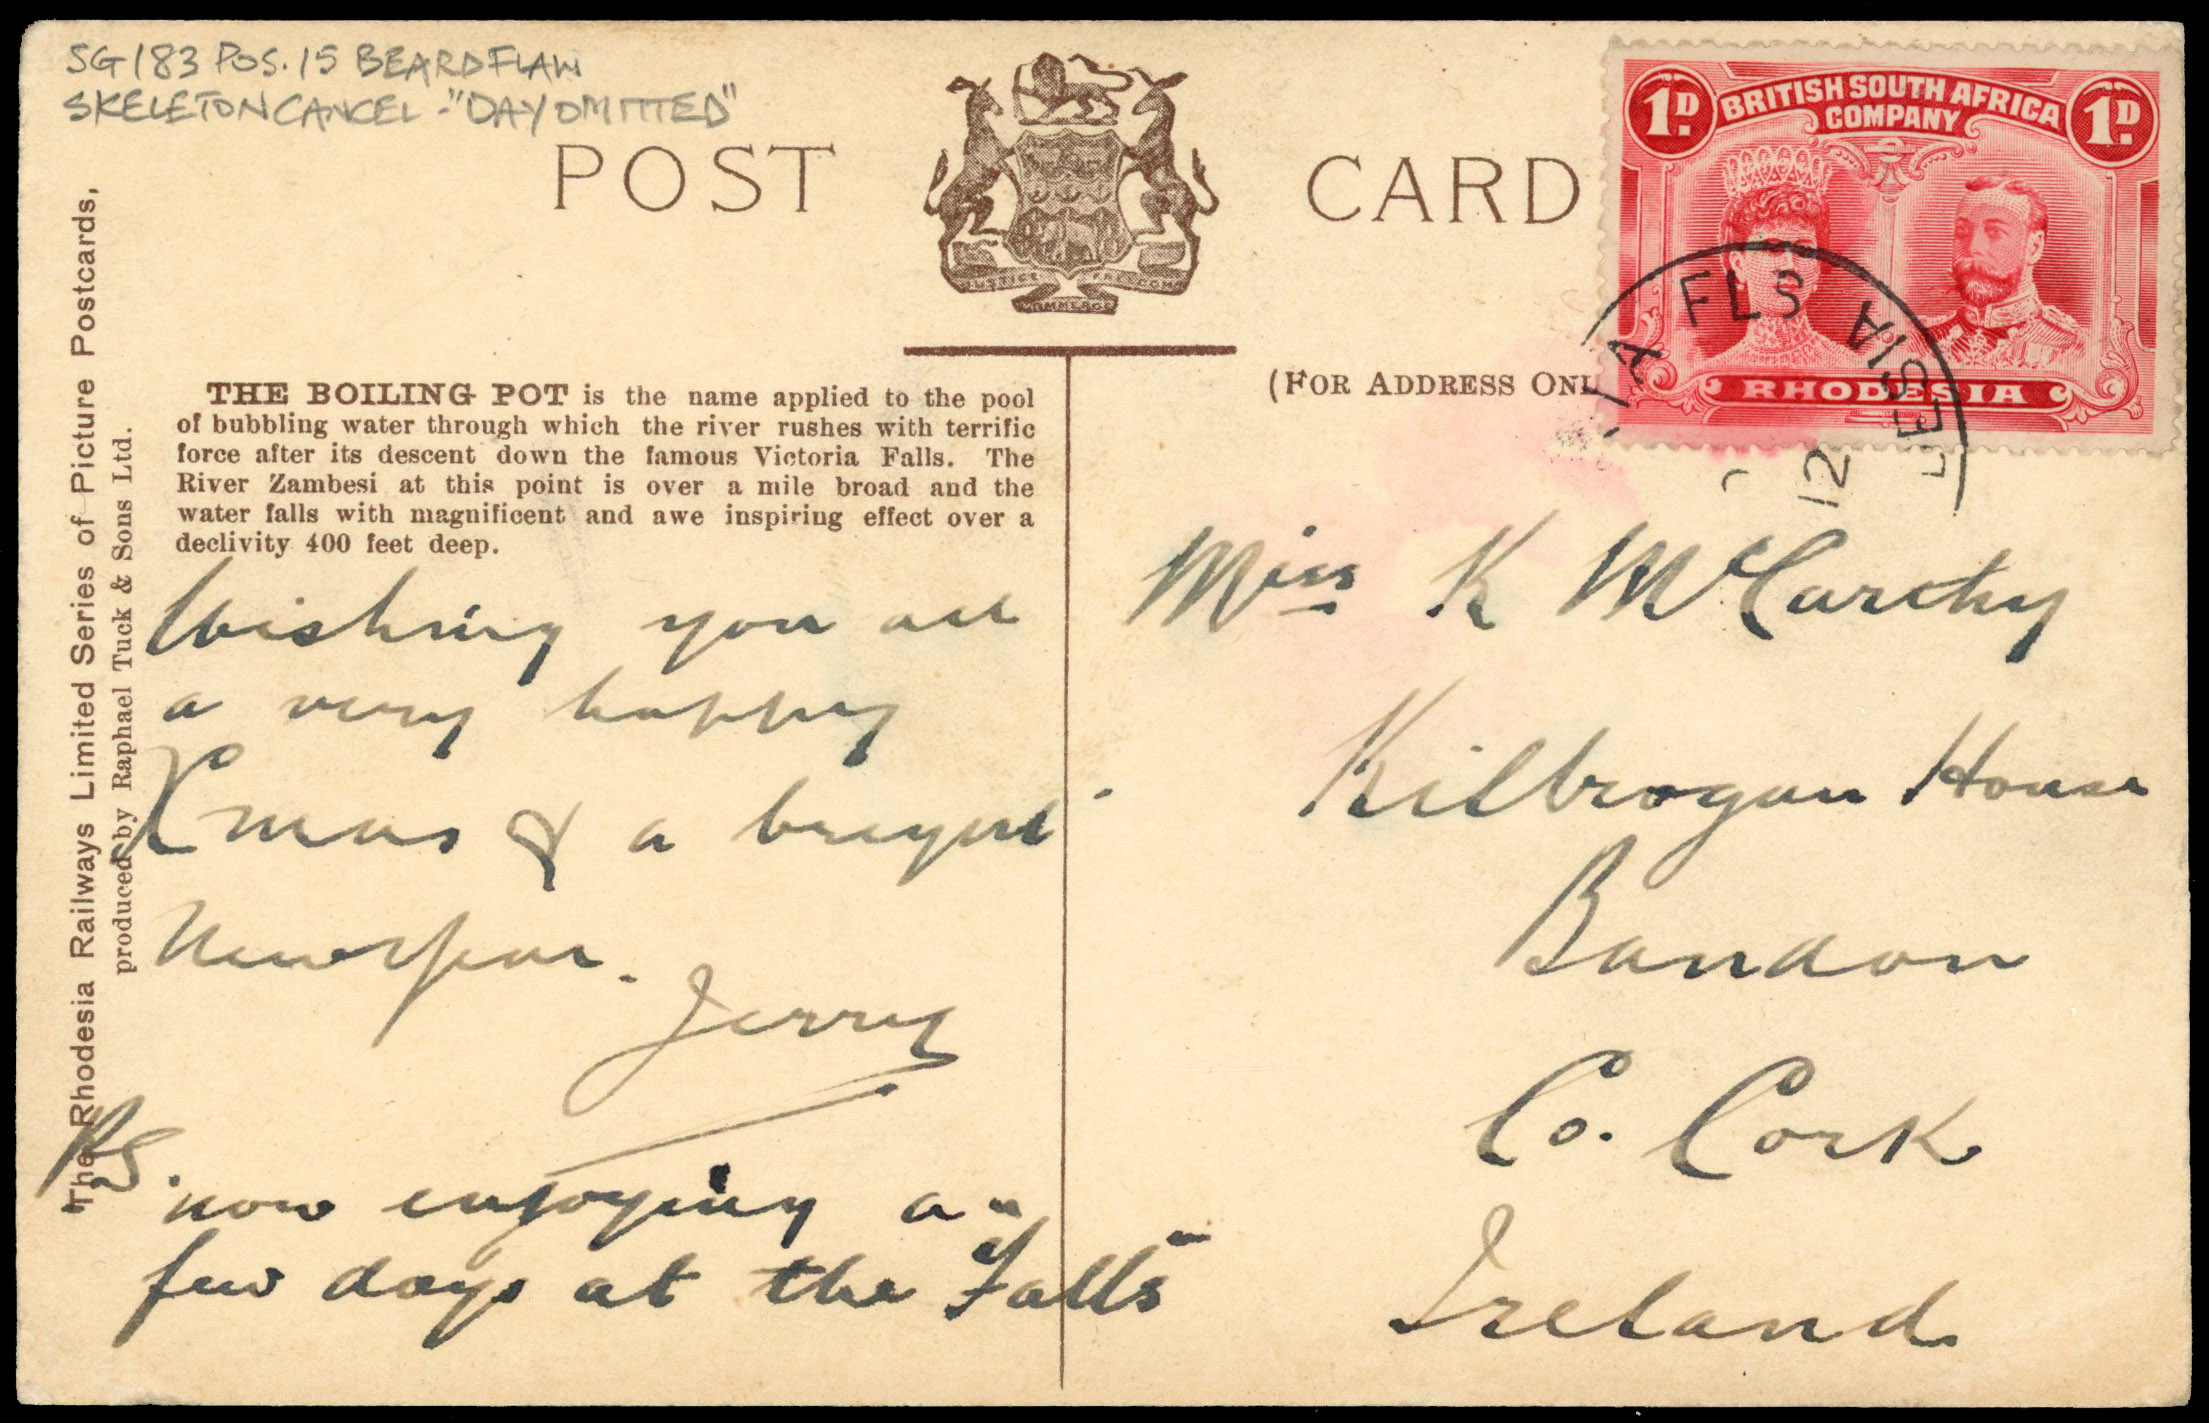 SG 183 POS. 15 BEARD FLAW
SKELETON CANCEL - "DAY OMITTED"
POST CARD
JUSTICE FREEDOM
COMMERCE
1D. BRITISH SOUTH AFRICA 1D.
COMPANY
RHODESIA
FLS
ESIA
12
(FOR ADDRESS ONL
The Rhodesia Railways Limited Series of Picture Postcards,
produced by Raphael Tuck & Sons Ltd.
THE BOILING POT is the name applied to the pool
of bubbling water through which the river rushes with terrific
force after its descent down the famous Victoria Falls. The
River Zambesi at this point is over a mile broad and the
water falls with magnificent and awe inspiring effect over a
declivity 400 feet deep.
Wishing you all
a very happy
Xmas & a bright
New Year.
Jerry
PS.
now enjoying a
few days at the "Falls"
Miss K McCarthy
Kilbrogan House
Bandon
Co. Cork
Ireland